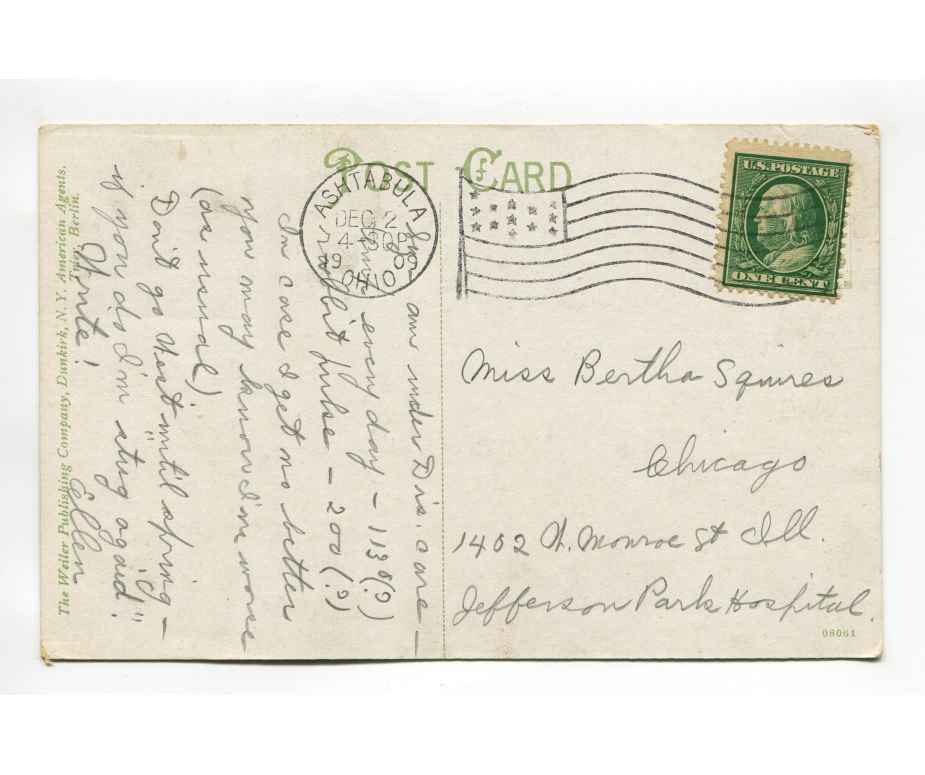 POST CARD
ASHTABULA
DEC 2
4-30P
19
OHIO
U.S. POSTAGE
ONE CENT
am under Drs. care —
every day — 113°(?)
might pulse — 200(?)
In case I get no better
you may know I'm worse
(as usual)
Don't go West until spring —
if you do I'm stug again!
Yours!
Ellen
Miss Bertha Squires
Chicago
1402 W. Monroe St Ill.
Jefferson Park Hospital.
The Weiler Publishing Company, Dunkirk, N.Y. American Agents.
Berlin.
08061